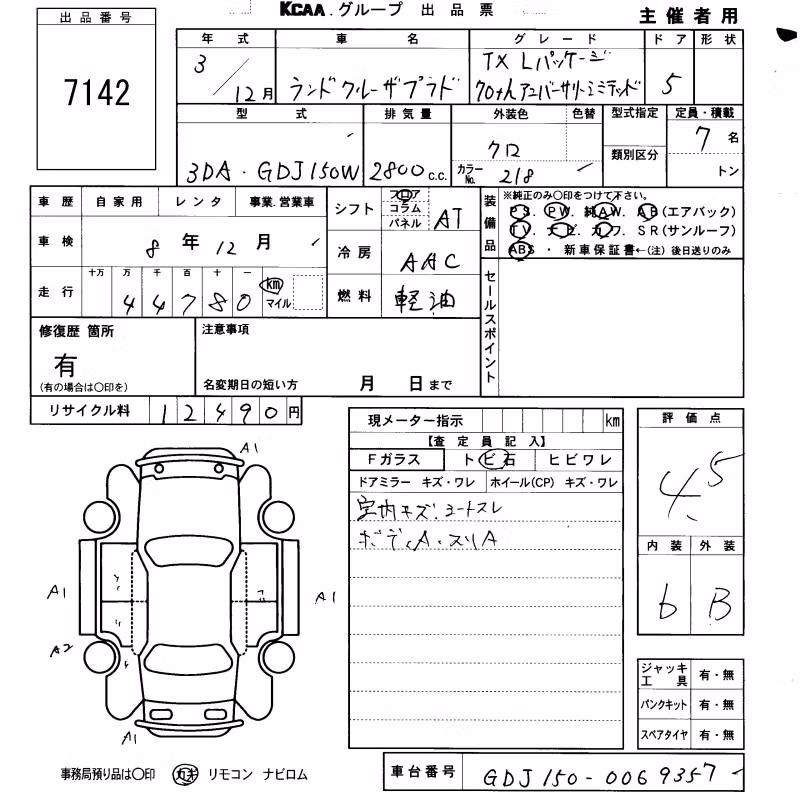 KCAA.グループ 出品票
主催者用
出品番号
7142
年式 車名 グレード ドア 形状
3/12月 ランドクルーザプラド TX Lパッケージ 5
70thアニバーサリーリミテッド
型式 排気量 外装色 色替 型式指定 定員・積載
3DA・GDJ150W 2800c.c. クロ 7名
カラーNo. 218 類別区分 トン
車歴 自家用 レンタ 事業.営業車
車検 8年12月
走行 十万 万 千 百 十 一
44780 km マイル
シフト フロア コラム パネル AT
冷房 AAC
燃料 軽油
装備品
※純正のみ○印をつけて下さい。
PS. PW. 純AW. AB(エアバック)
TV. ナビ. カワ. SR(サンルーフ)
ABS・新車保証書←(注)後日送りのみ
セールスポイント
修復歴 箇所
有
(有の場合は○印を)
注意事項
名変期日の短い方 月 日まで
リサイクル料 12490円
現メーター指示 km
【査定員記入】
Fガラス トビ石 ヒビワレ
ドアミラー キズ・ワレ ホイール(CP) キズ・ワレ
室内キズ.シートスレ
ボディA.スリA
評価点
4.5
内装 外装
b B
A1
A1
A1
A2
A1
ジャッキ工具 有・無
パンクキット 有・無
スペアタイヤ 有・無
事務局預り品は○印 カギ リモコン ナビロム
車台番号 GDJ150-0069357